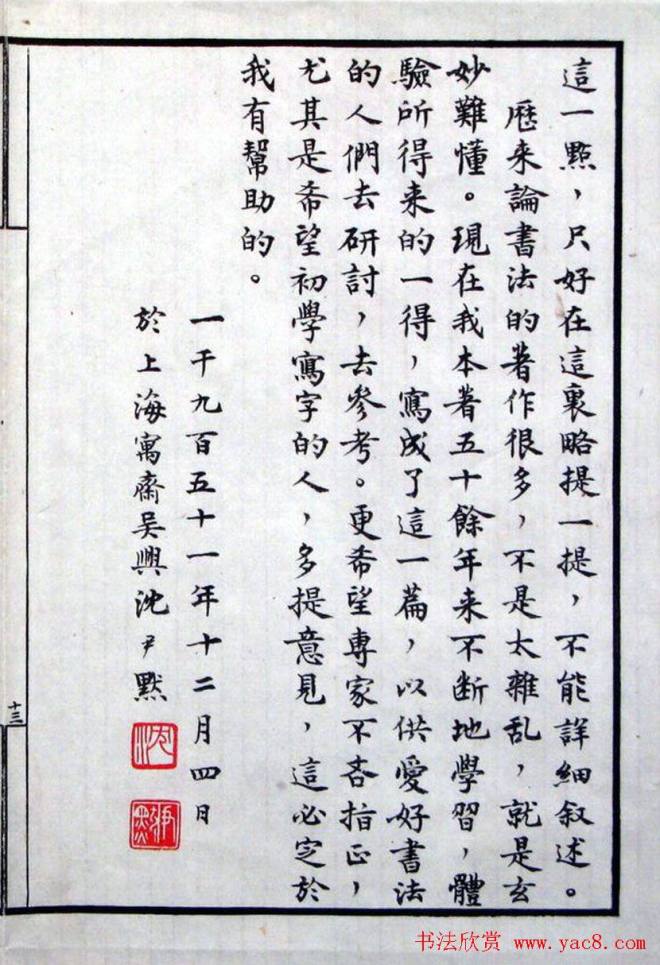 這一點，只好在這裏略提一提，不能詳細叙述。
歷来論書法的著作很多，不是太雜乱，就是玄
妙難懂。現在我本著五十餘年来不断地學習，體
驗所得来的一得，寫成了這一篇，以供愛好書法
的人們去研討，去參考。更希望專家不吝指正，
尤其是希望初學寫字的人，多提意見，這必定於
我有幫助的。
一千九百五十一年十二月四日
於上海寓齋吴興沈尹默
沈
尹默
十三
书法欣赏 www.yac8.com